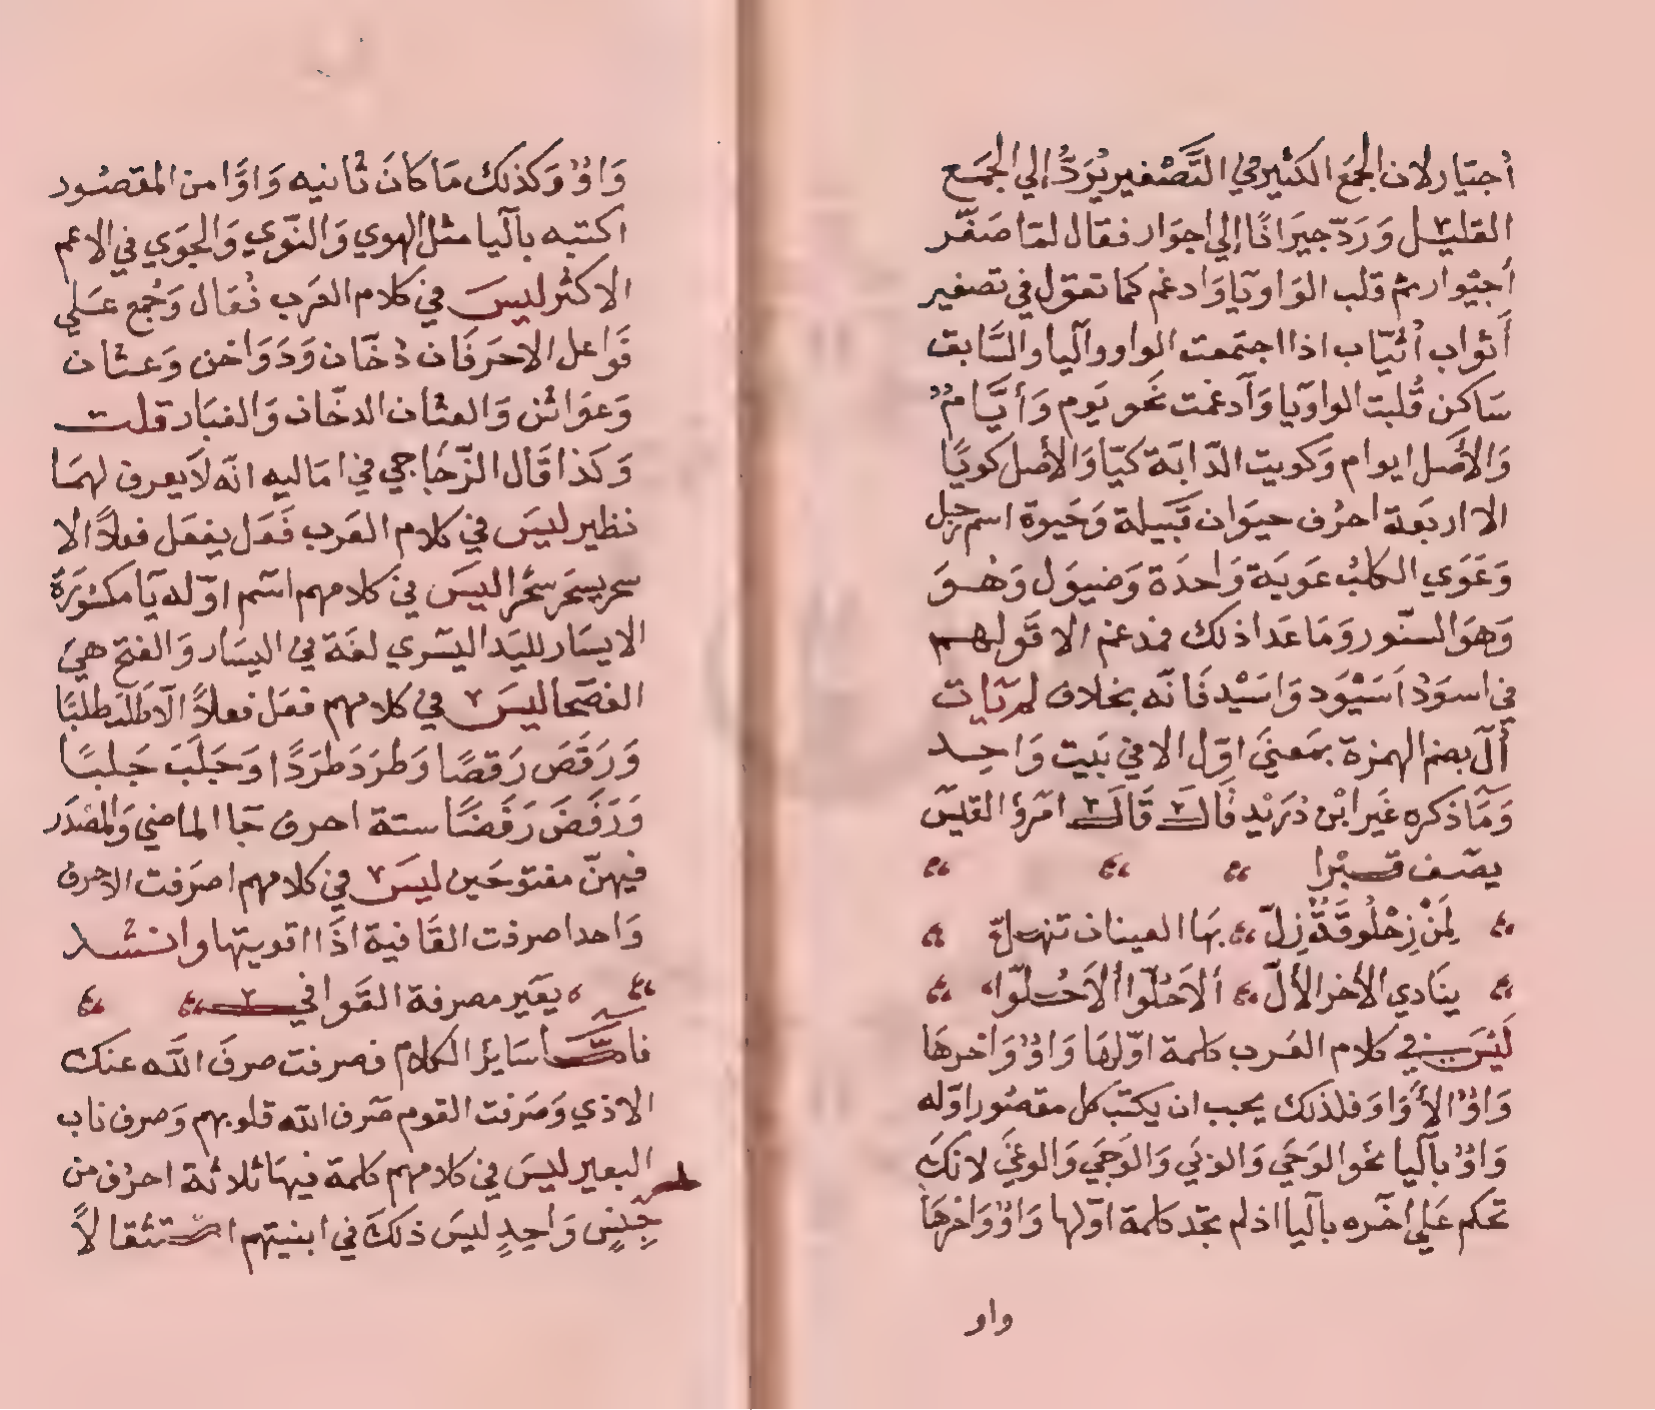 أجيّار لان الجمَع الكثير في التَّصْغير يُرَدُّ إلي الجمَع
القليل وَرَدّ جيرَانًا إلي اجوَار فقال لمّا صَغّر
أجيْوار ثم قلب الوَاو يَا وَادغم كما تقول في تصغير
أَثواب أُثيّاب اذا اجتمعت الواو واليا والسَّابق
سَاكن قُلبت الواو يَا وَآدغمت نحَو يَوم وَأيَّامٌ
وَالأَصَل ايوام وَكويت الدّابَة كيّا وَالأصل كويًا
الا اربَعة احرُف حيوَان قَبيلة وَحَيوة اسم رجل
وَعَوَي الكلبُ عَويَة وَاحدَة وَضيوَل وَهُــوَ
وَهوَ السنّور وَمَا عَدا ذلك فمدغم الا قَولهــم
في اسوَدْ اَسَيْوَد وَاسَيْد فَانّه بخلاف لم يَات
أُلّ بضم الهمزة بمَعنيَ اوّل الا في بَيت وَاحِــد
وَمَا ذكره غَير ابْن دُرَيْد قَالَ قَالَ امرؤ القيسَ
يصَف قــبْرا
لِمَنْ زِحْلُوقَةٌ زِلّ بهَا العينان تنهــلّ
ينَادي الأخر الألّ ألاَ حُلّوا ألاَ حُــلّوا
لَيْسَ في كلام العَرب كلمة اوّلهَا وَاوٌ وَاخرهَا
وَاوٌ الأَوَاوَ فلذلك يجب ان يكتب كل مقصُور اوّله
وَاوٌ بآليا نحو الوَحَي وَالونَي وَالوَجَي وَالوغَيَ لانكَ
تحكم عَلي اخَره باليا اذ لم تجَد كلمة اوّلها وَاوٌ وَاخرهَا
واو
وَاوٌ وَكذلك مَا كانَ ثانيه وَاوًا من المقصُود
اكتبه بآليا مثل الهوي وَالنّوَي وَالجوَي في الاعم
الاكثر ليسَ في كلام العَرب فُعَال وَجُمع عَــلي
فَوَاعل الا حَرفَان دُخَّان وَدَوَاخن وَعثان
وَعوَاثن وَالعثان الدخّان وَالغبَار قلت
وَكذا قَال الزّجّاجي في امَاليه انَه لاَ يعرف لهمَا
نظير ليسَ في كلام العَرب فَعَل يفعَل فعلاً الا
سحر يسحَر سحْرا ليسَ في كلامهم اسَم اوّله يَا مكسُورَة
الا يسَار لليَد اليسَري لغة في اليسَار وَالفتح هيَ
الفصَحا ليسَ في كلامهم فعَل فعلاً الاّ طلَب طلبًا
وَرَقَصَ رَقصًا وَطرَدَ طرَدًا وَجَلَبَ جَلبًــا
وَرَفَضَ رَفَضًا ستة احرف جَا الماضي وَالمصْدَر
فيهنّ مفتوحَين ليسَ في كلامهم اصرَفت الا حرف
وَاحدا صرفت القَافية اذَا اقويتها وانشــد
يغَير مصرفة القَوافي
فاما سَايرْ الكلام فصرفت صرفَ الله عنك
الاذي وَصرَفت القوم صَرف الله قلوبهم وَصرف ناب
البعير ليسَ في كلامهم كلمة فيهَا ثلاثة احرُف من
جِنسٍ وَاحِدٍ ليسَ ذلكَ في ابنيتهم استثقالاً